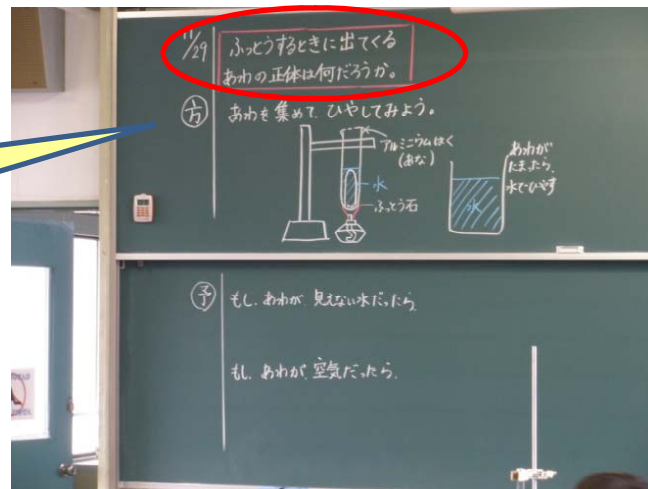 11/29
ふっとうするときに出てくる
あわの正体は何だろうか。
方
あわを集めて、ひやしてみよう。
アルミニウムはく
(あな)
水
ふっとう石
水
あわが
たまったら、
水でひやす
予
もし、あわが、見えない水だったら、
もし、あわが、空気だったら、